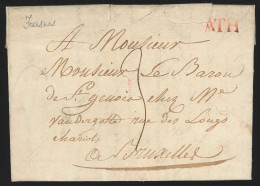 ATH
A Monsieur
Monsieur Le Baron
de St. genois chez Mr
Vandergotte rue des Longs
chariots
a Bruxelles